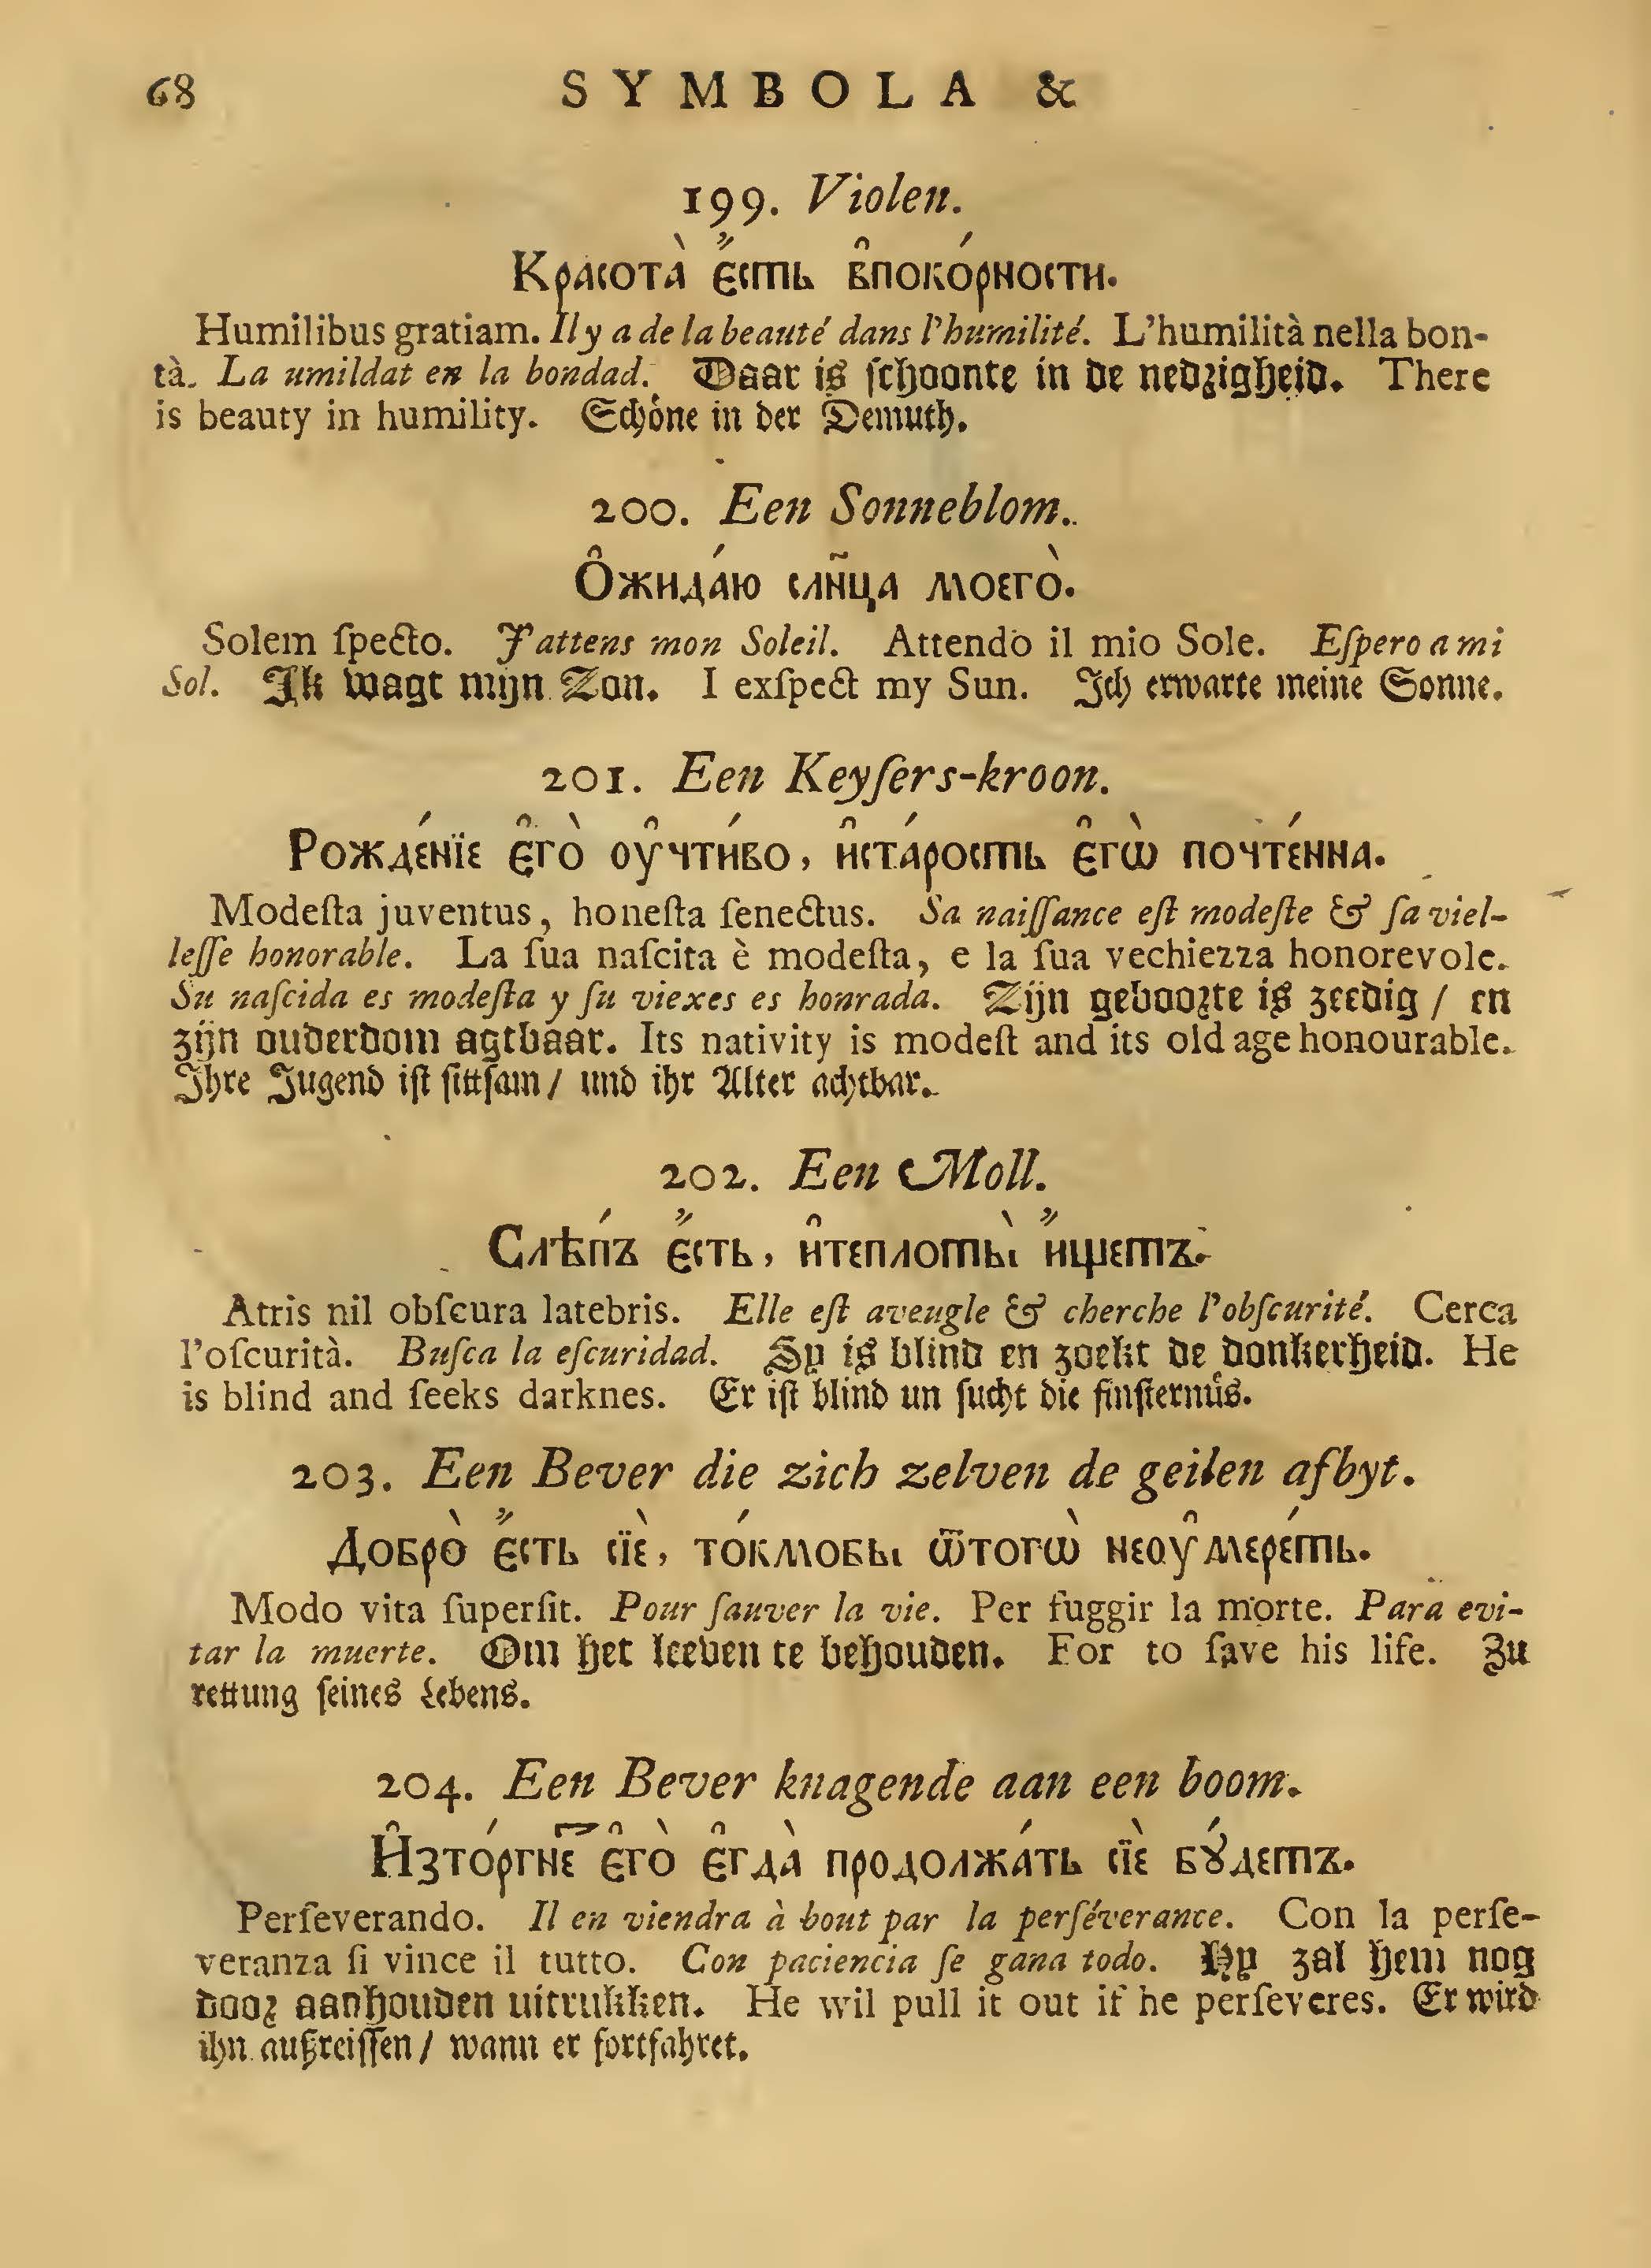 68 SYMBOLA &
199. Violen.
Красота̀ є҆́сть в̑поко́рности.
Humilibus gratiam. Il y a de la beauté dans l'humilité. L'humilità nella bon-
tà. La umildat en la bondad. Daar is ſchoonte in de nedrigheid. There
is beauty in humility. Schöne in der Demuth.
200. Een Sonneblom.
Ѻ҆жида́ю сл҃нца моегѡ̀.
Solem ſpecto. J'attens mon Soleil. Attendo il mio Sole. Eſpero a mi
Sol. Ik wagt mijn Zon. I exſpect my Sun. Ich erwarte meine Sonne.
201. Een Keyſers-kroon.
Рожде́нїе є҆го̀ оу҆чти́во, и҆ста́рость є҆гѡ̀ почте́нна.
Modeſta juventus, honeſta ſenectus. Sa naiſſance eſt modeſte & ſa viel-
leſſe honorable. La ſua naſcita è modeſta, e la ſua vechiezza honorevole.
Su naſcida es modeſta y ſu viexes es honrada. Zijn geboorte is zeedig / en
zijn ouderdom agtbaar. Its nativity is modeſt and its old age honourable.
Ihre Jugend iſt ſittſam / und ihr Alter achtbar.
202. Een Moll.
Слѣ́пъ є҆́сть, и҆теплоты̀ и҆́щетъ.
Atris nil obſcura latebris. Elle eſt aveugle & cherche l'obſcurité. Cerca
l'oſcurità. Buſca la eſcuridad. Sy is blind en zoekt de donkerheid. He
is blind and ſeeks darknes. Er iſt blind un ſucht die finſternüs.
203. Een Bever die zich zelven de geilen afbyt.
Добро̀ є҆́сть сїѐ, то́кмобы ѿтогѡ̀ неоу҆мере́ть.
Modo vita ſuperſit. Pour ſauver la vie. Per fuggir la morte. Para evi-
tar la muerte. Om het leeven te behouden. For to ſave his life. Zu
rettung ſeines Lebens.
204. Een Bever knagende aan een boom.
И҆зто́ргнет є҆го̀ є҆гда̀ продолжа́ть сїѐ бꙋ́детъ.
Perſeverando. Il en viendra à bout par la perſéverance. Con la perſe-
veranza ſi vince il tutto. Con paciencia ſe gana todo. Hy zal hem nog
door aanhouden uitrukken. He wil pull it out if he perſeveres. Er wird
ihn außreiſſen / wann er fortfahret.